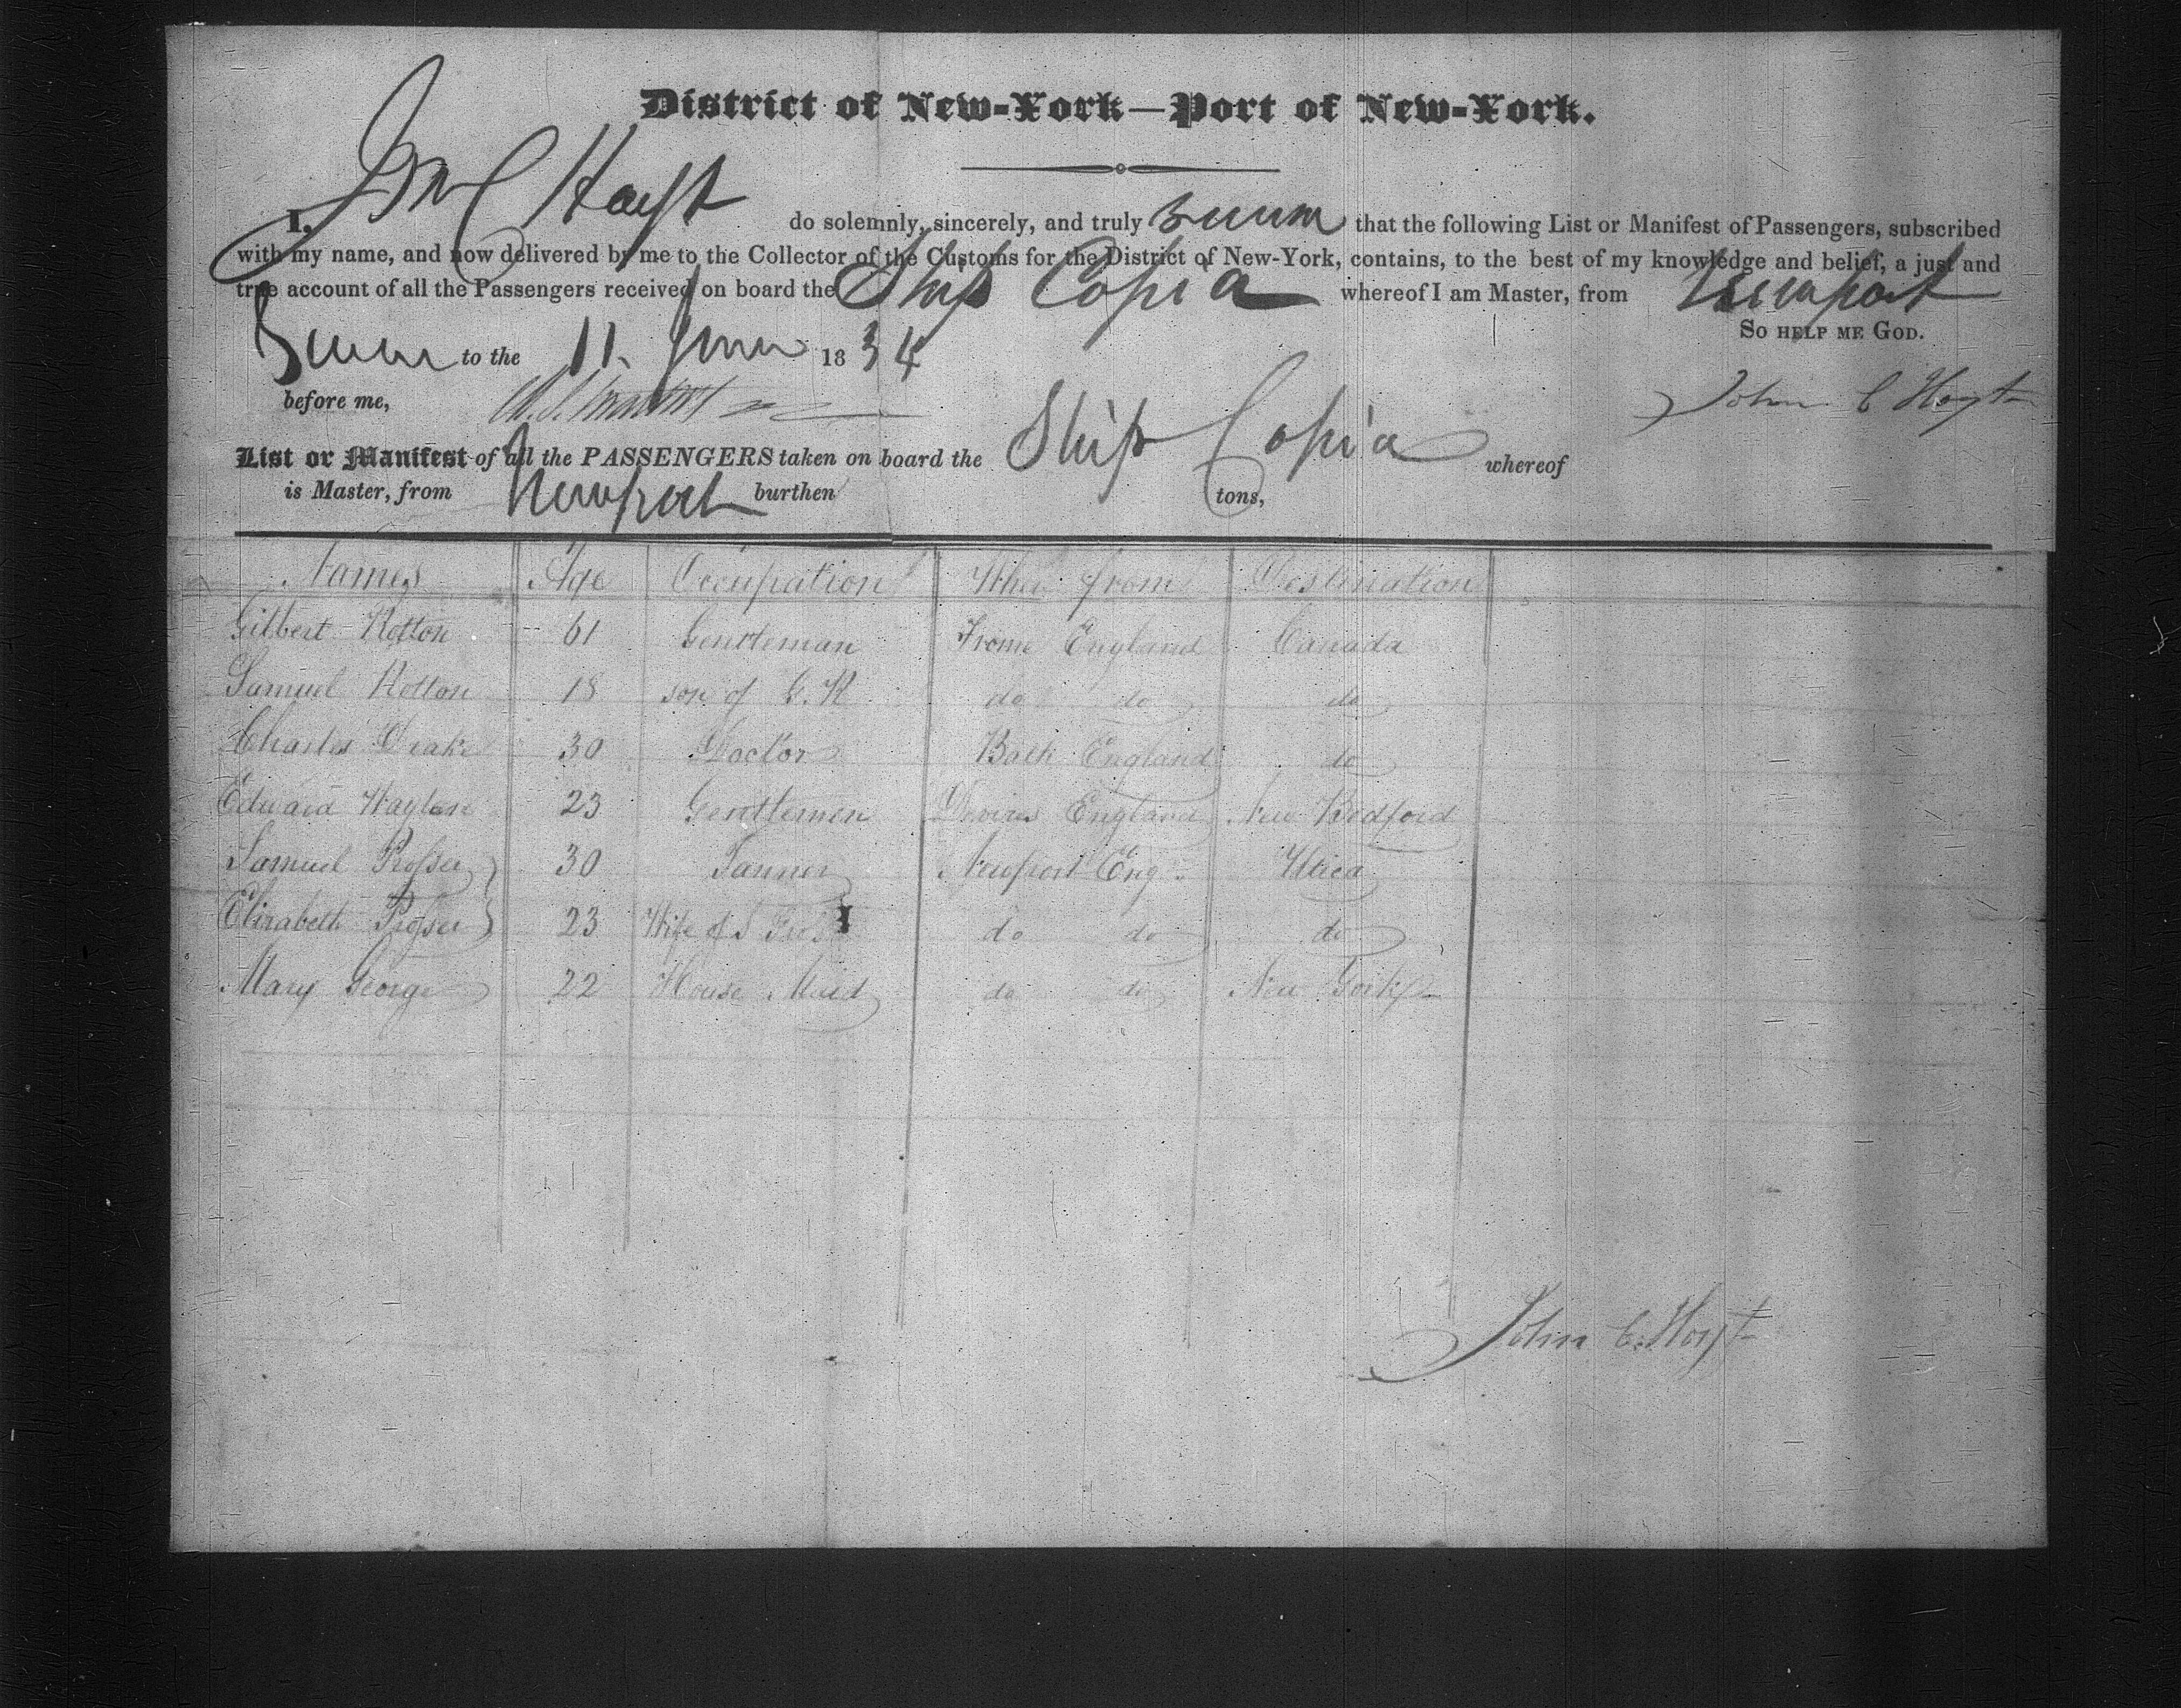 District of New-York—Port of New-York.
I, Jno C Hoyt do solemnly, sincerely, and truly swear that the following List or Manifest of Passengers, subscribed
with my name, and now delivered by me to the Collector of the Customs for the District of New-York, contains, to the best of my knowledge and belief, a just and
true account of all the Passengers received on board the Ship Copia whereof I am Master, from Newport
So help me God.
Sworn to the 11 June 1834
before me, John C Hoyt
List or Manifest of all the PASSENGERS taken on board the Ship Copia whereof
is Master, from Newport burthen tons,
Names Age Occupation Where from Destination
Gilbert Kotton 61 Gentleman Frome England Canada
Samuel Kotton 18 son of G. K do do do
Charles Drake 30 Doctor Bath England do
Edward Waylen 23 Gentlemen Devizes England New Bedford
Samuel Prosser 30 Tanner Newport Eng. Utica
Elizabeth Prosser 23 Wife of S Pross do do do
Mary George 22 House Maid do do New York
John C. Hoyt